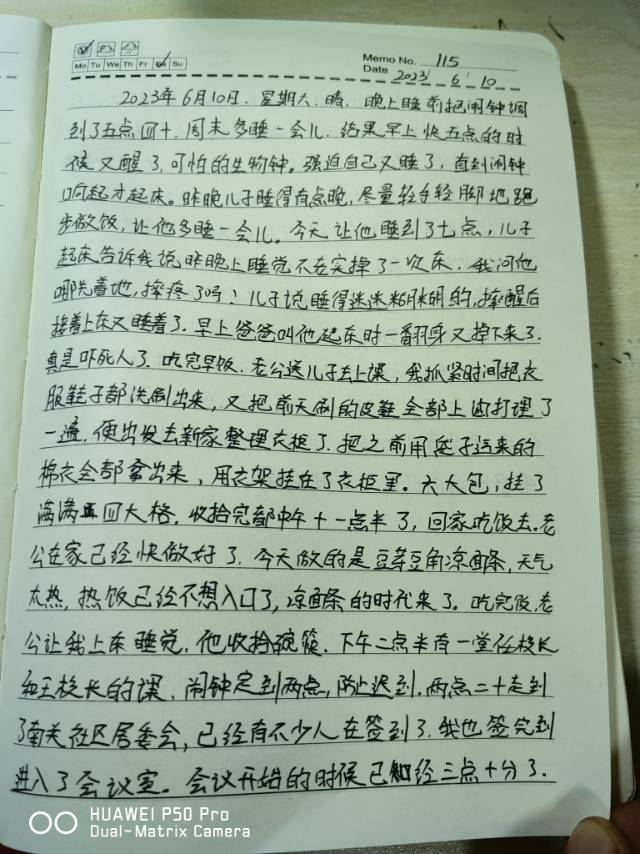 Mo Tu We Th Fr Sa Su
Memo No. 115
Date 2023 6 10
2023年6月10日. 星期六. 晴. 晚上睡前把闹钟调
到了五点四十. 周末多睡一会儿. 结果早上快五点的时
候又醒了, 可怕的生物钟。强迫自己又睡了, 直到闹钟
响起才起床。昨晚儿子睡得有点晚, 尽量轻手轻脚地跑
步做饭, 让他多睡一会儿。今天让他睡到了七点, 儿子
起床告诉我说昨晚上睡觉不老实掉了一次床. 我问他
哪先着地, 摔疼了吗? 儿子说睡得迷迷糊糊的, 摔醒后
接着上床又睡着了. 早上爸爸叫他起床时一翻身又掉下来了.
真是吓死人了. 吃完早饭. 老公送儿子去上课, 我抓紧时间把衣
服鞋子都洗刷出来, 又把前天刷的皮鞋全部上油打理了
一遍, 便出发去新家整理衣柜了. 把之前用袋子运来的
棉衣全部拿出来, 用衣架挂在了衣柜里。六大包, 挂了
满满四大格. 收拾完都中午十一点半了, 回家吃饭去. 老
公在家已经快做好了. 今天做的是豆芽豆角凉面条, 天气
太热, 热饭已经不想入口了, 凉面条的时代来了. 吃完饭, 老
公让我上床睡觉, 他收拾碗筷. 下午二点半有一堂任校长
和王校长的课, 闹钟定到两点, 防止迟到. 两点二十走到
了南关社区居委会, 已经有不少人在签到了. 我也签完到
进入了会议室。会议开始的时候已经三点十分了.
HUAWEI P50 Pro
Dual-Matrix Camera